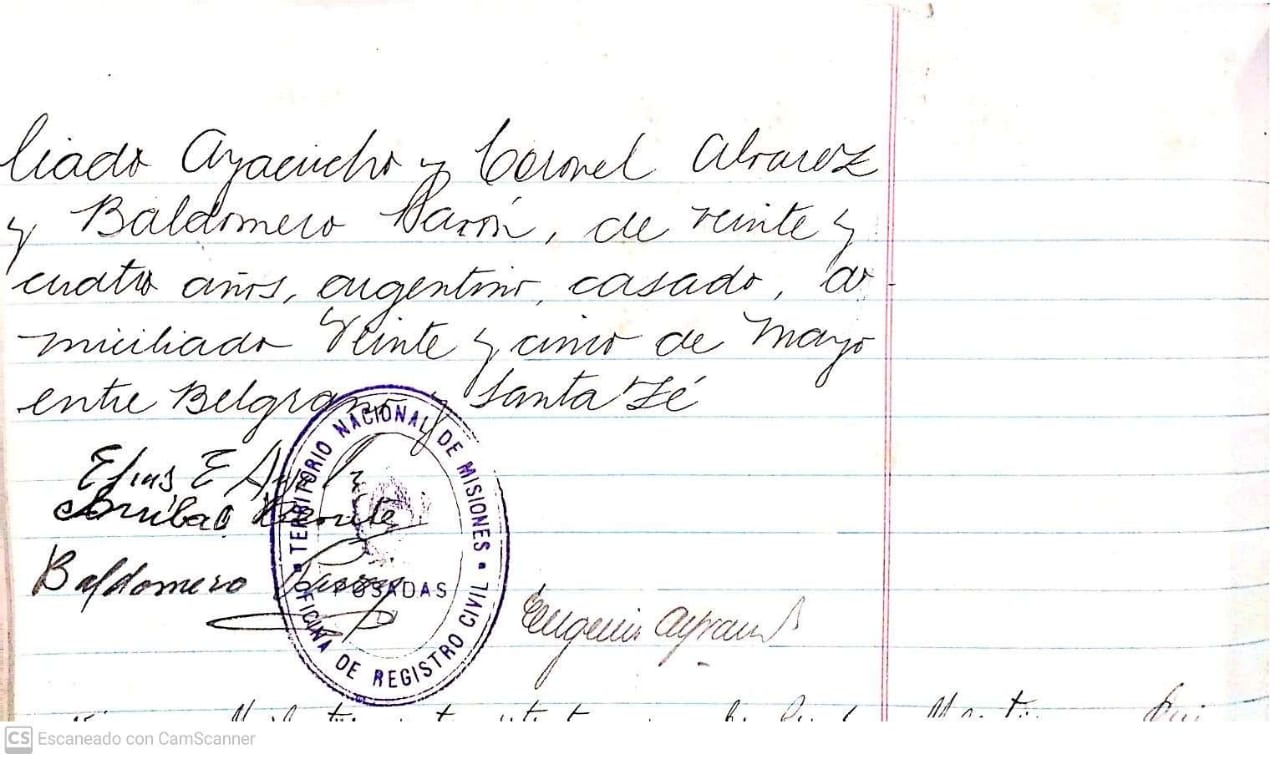 liado Ayacucho y Coronel Alvarez
y Baldomero Pavón, de veinte y
cuatro años, argentino, casado, do-
miciliado Veinte y cinco de Mayo
entre Belgrano y Santa Fé
E
Baldomero
Eugenio
TERRITORIO NACIONAL DE MISIONES
POSADAS
OFICINA DE REGISTRO CIVIL
CS Escaneado con CamScanner